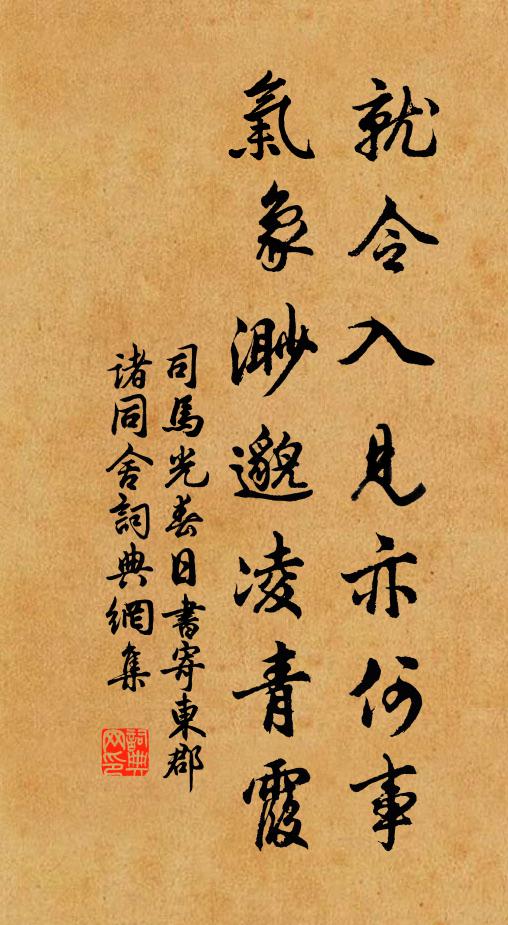 就令入見亦何事
氣象渺邈凌青霞
司馬光春日書寄東郡
諸同舍詞典網集
詞典网印